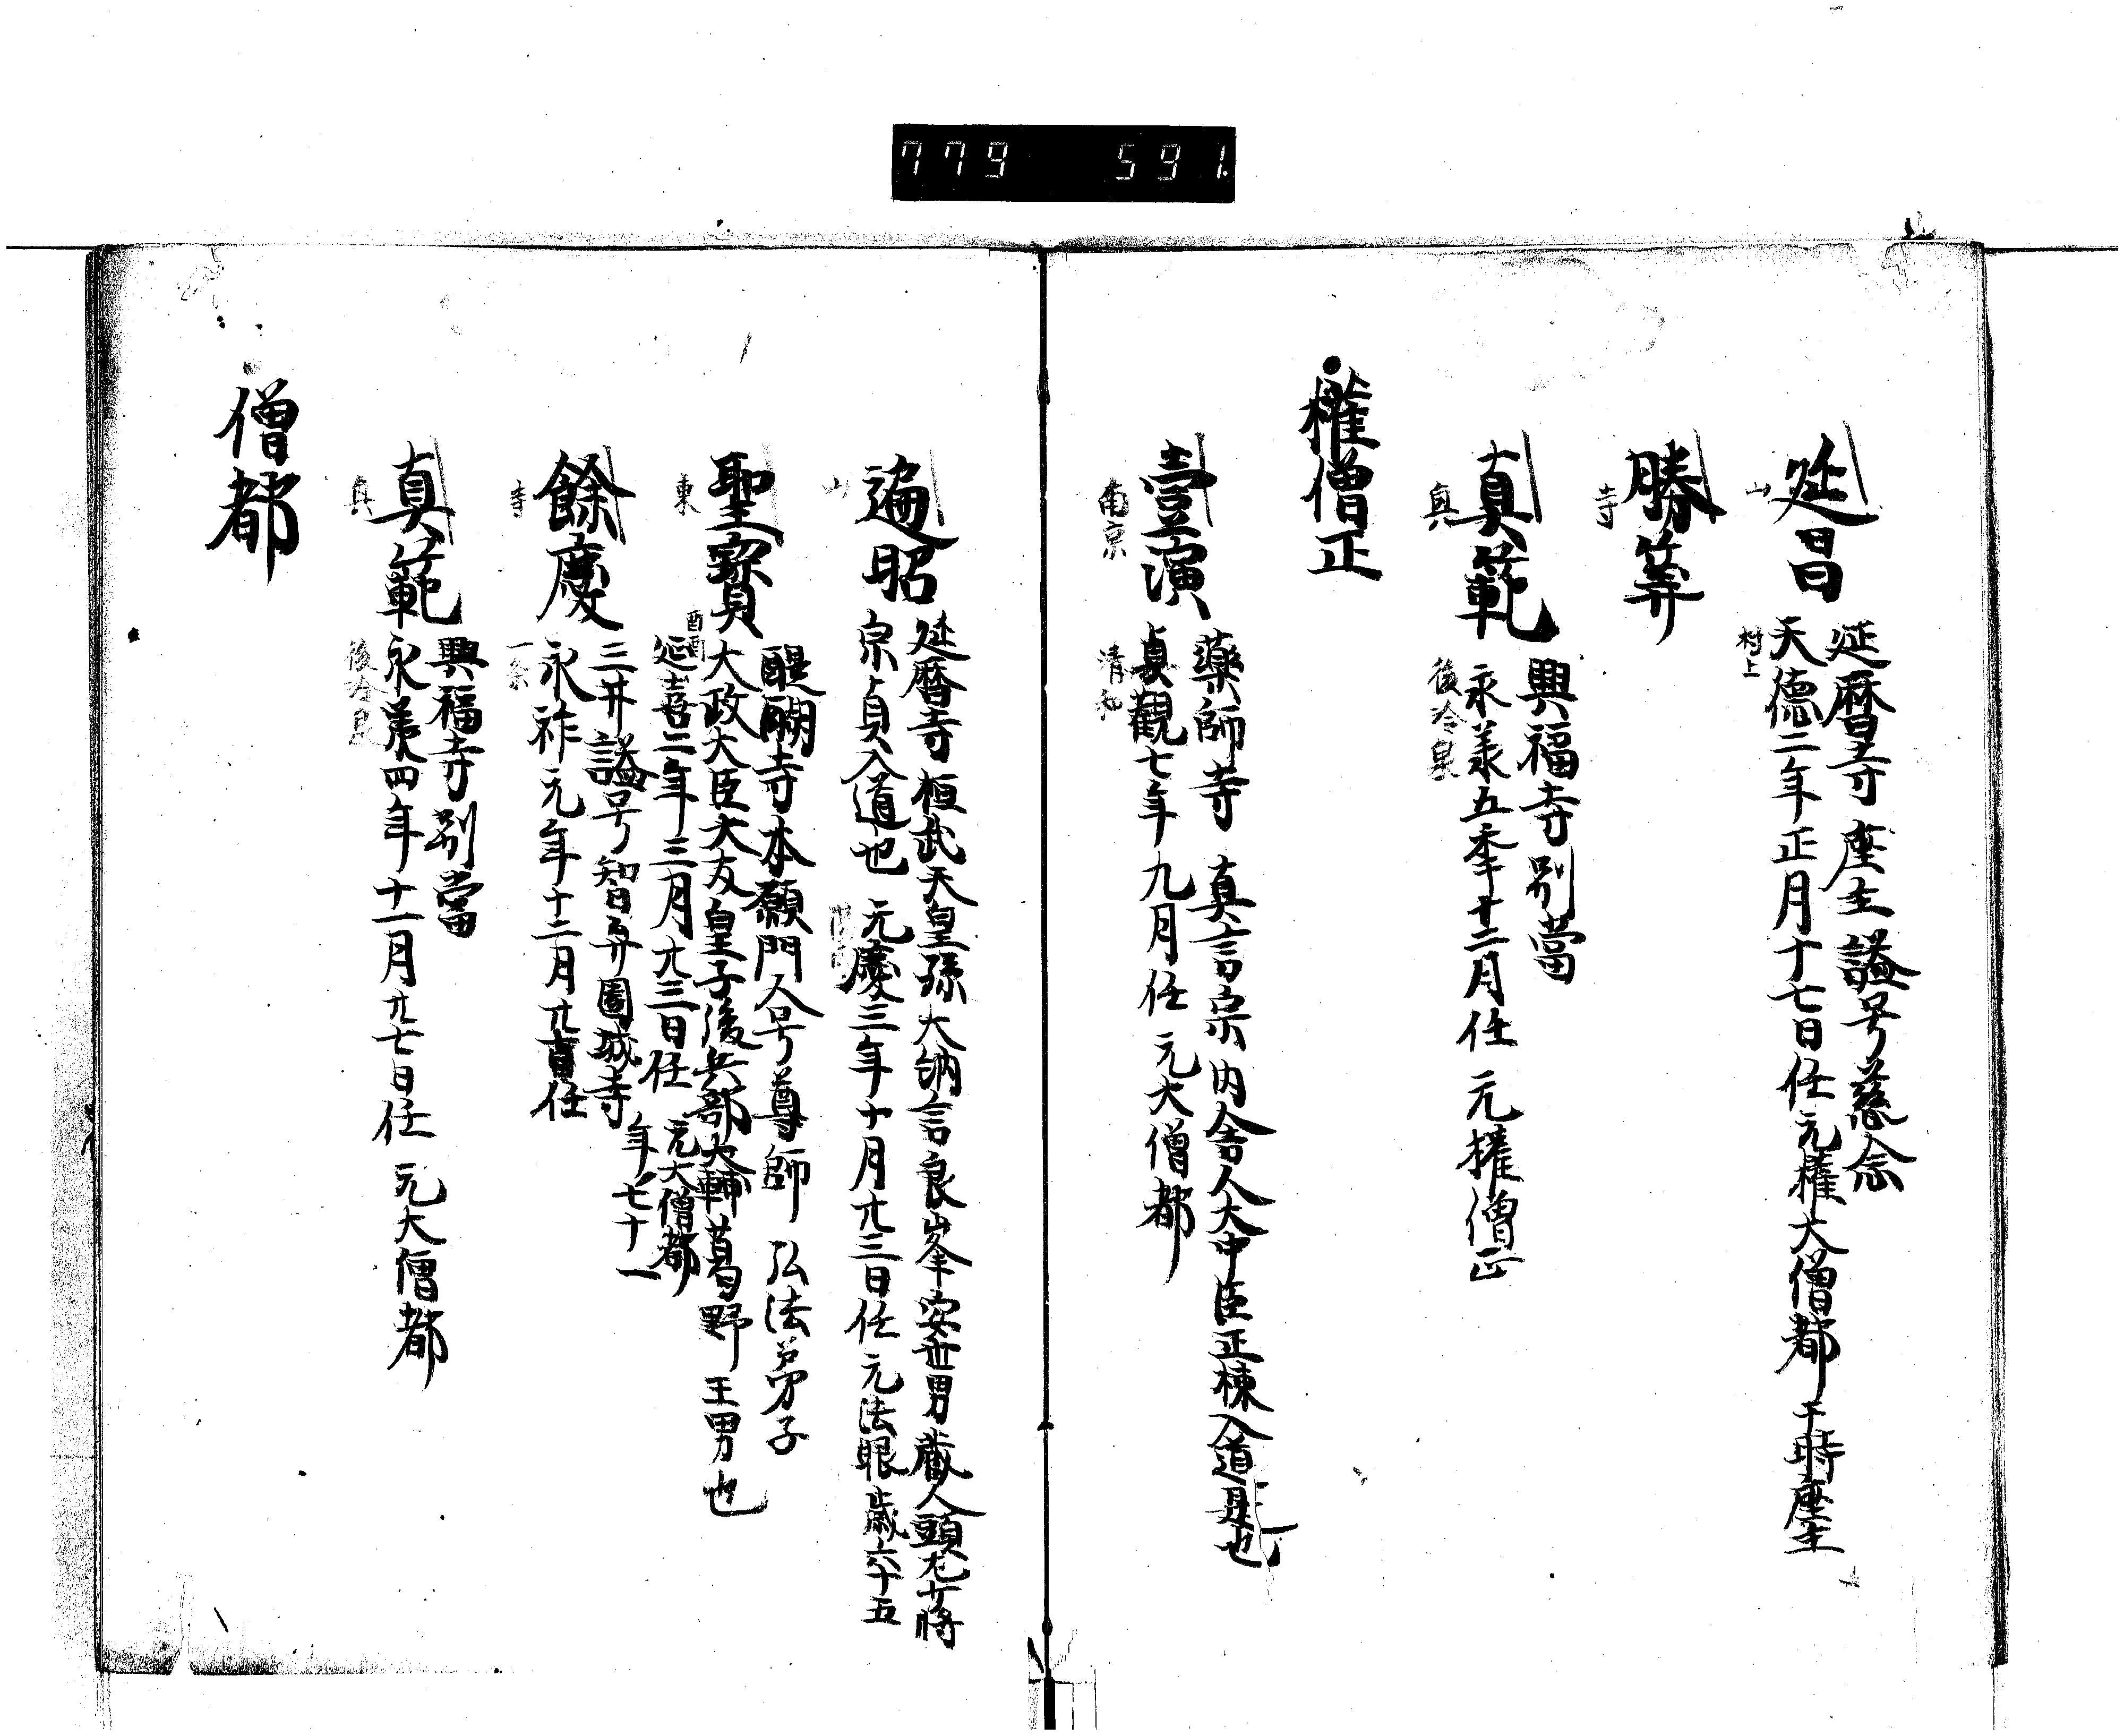 779 591
延昌
山
延曆寺座主謚号慈念
天德二年正月十七日任元權大僧都于時座主
村上
勝筭
寺
真範
真
興福寺別當
永義五季十二月任 元權僧正
後冷泉
權僧正
壹演
南京
藥師寺 真言宗 内舍人大中臣正棟入道是也
貞觀七年九月任 元大僧都
清和
遍昭
山
延曆寺 桓武天皇孫 大納言良峯安世男 蔵人頭左少将
宗貞入道也 元慶三年十月廿三日任 元法眼 歳六十五
聖寳
東
醍醐寺本願門人号尊師 弘法弟子
大政大臣大友皇子後兵部大輔葛野王男也
延喜二年三月廿三日任 元大僧都
年七十一
餘慶
寺
三井 謚号智弁 園城寺
永祚元年十二月廿 任
一条
真範
真
興福寺別當
永義四年十一月廿七日任 元大僧都
後冷泉
僧都